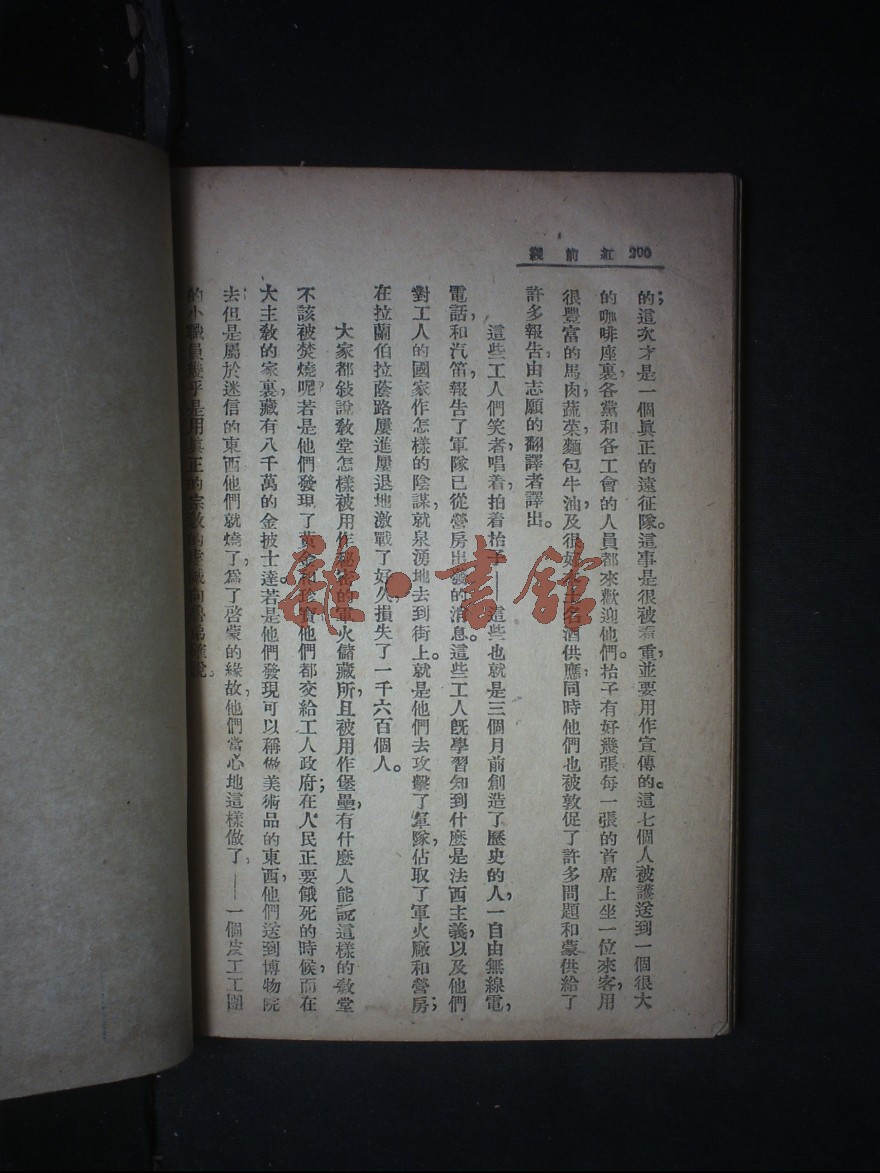 紅前綫 200
的；這次才是一個眞正的遠征隊。這事是很被看重，並要用作宣傳的。這七個人被護送到一個很大
的咖啡座裏，各黨和各工會的人員都來歡迎他們。枱子有好幾張，每一張的首席上坐一位來客，用
很豐富的馬肉，蔬菜，麵包，牛油，及很好本土名酒供應，同時他們也被敦促了許多問題和蒙供給了
許多報告，由志願的翻譯者譯出。
這些工人們笑者，唱着，拍着枱子——這些也就是三個月前創造了歷史的人，一自由無線電，
電話，和汽笛，報告了軍隊已從營房出發的消息。這些工人旣學習知到什麼是法西主義，以及他們
對工人的國家作怎樣的陰謀，就泉湧地去到街上。就是他們去攻擊了軍隊，佔取了軍火廠和營房；
在拉蘭伯拉蔭路屢進屢退地激戰了好久，損失了一千六百個人。
大家都敍說敎堂怎樣被用作秘密的軍火儲藏所，且被用作堡壘，有什麼人能說這樣的敎堂
不該被焚燒呢？若是他們發現了黃金和珍寶他們都交給工人政府；在人民正要餓死的時候，而在
大主敎的家裏，藏有八千萬的金披士達。若是他們發現可以稱做美術品的東西，他們送到博物院
去；但是屬於迷信的東西他們就燒了，爲了啓蒙的緣故，他們當心地這樣做了。——一個皮工工團
的小職員幾乎是用眞正的宗敎的
雜·書館